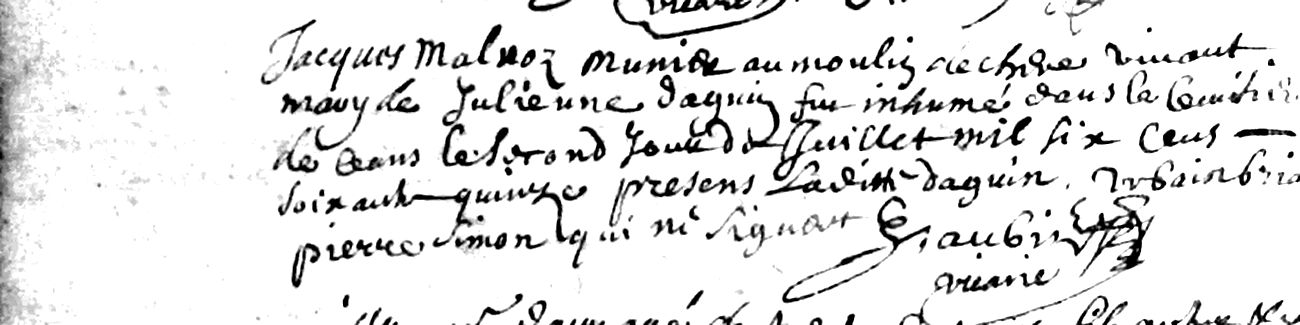 vicaire
Jacques Malnoz munier au moulin de chere vivant
mary de Julienne daguin fut inhumé dans le Cemitie
de ceans le second Jour de Juillet mil six cens
soixante quinze presens Laditte daguin, Urbain bria
pierre simon qui ne signent G. aubin
vicaire